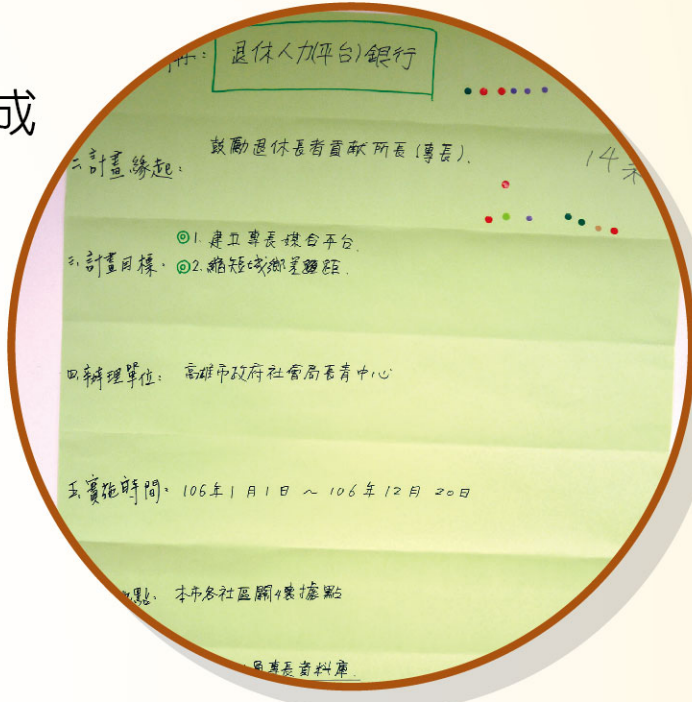 成
退休人力(平台)銀行
二、計畫緣起：鼓勵退休長者貢獻所長(專長).
14
三、計畫目標：◎1. 建立專長媒合平台.
◎2. 縮短城鄉差距.
四、辦理單位：高雄市政府社會局長青中心
五、實施時間：106年1月1日～106年12月20日
點：本市各社區關懷據點
專長資料庫.